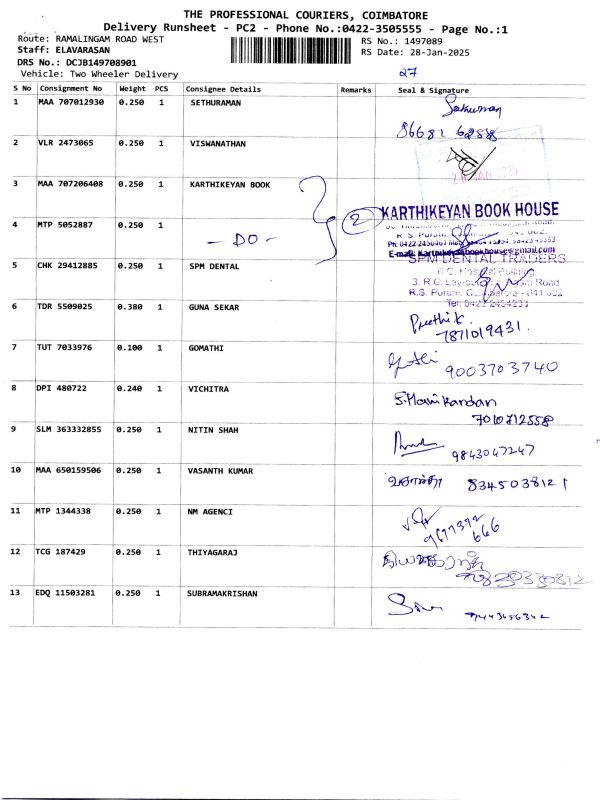 THE PROFESSIONAL COURIERS, COIMBATORE
Delivery Runsheet - PC2 - Phone No.:0422-3505555 - Page No.:1
Route: RAMALINGAM ROAD WEST
RS No.: 1497089
Staff: ELAVARASAN
RS Date: 28-Jan-2025
DRS No.: DCJB149708901
Vehicle: Two Wheeler Delivery
27
S No Consignment No Weight PCS Consignee Details Remarks Seal & Signature
1 MAA 707012930 0.250 1 SETHURAMAN
86681 6288
2 VLR 2473065 0.250 1 VISWANATHAN
3 MAA 707206408 0.250 1 KARTHIKEYAN BOOK
2 KARTHIKEYAN BOOK HOUSE
4 MTP 5052887 0.250 1 - DO -
5 CHK 29412885 0.250 1 SPM DENTAL
SPM DENTAL TRADERS
6 TDR 5509025 0.380 1 GUNA SEKAR
Preethi k.
7871019431.
7 TUT 7033976 0.100 1 GOMATHI
9003703740
8 DPI 480722 0.240 1 VICHITRA
S.Manikandan
7010712558
9 SLM 363332855 0.250 1 NITIN SHAH
9843047247
10 MAA 650159506 0.250 1 VASANTH KUMAR
வசந்தா 8345038121
11 MTP 1344338 0.250 1 NM AGENCI
9677392
666
12 TCG 187429 0.250 1 THIYAGARAJ
13 EDQ 11503281 0.250 1 SUBRAMAKRISHAN